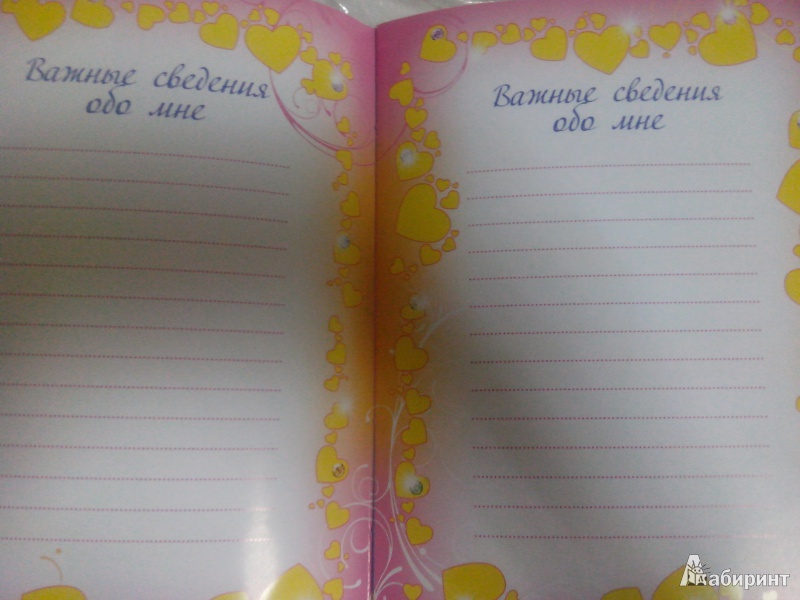 Важные сведения
обо мне
Важные сведения
обо мне
Лабиринт